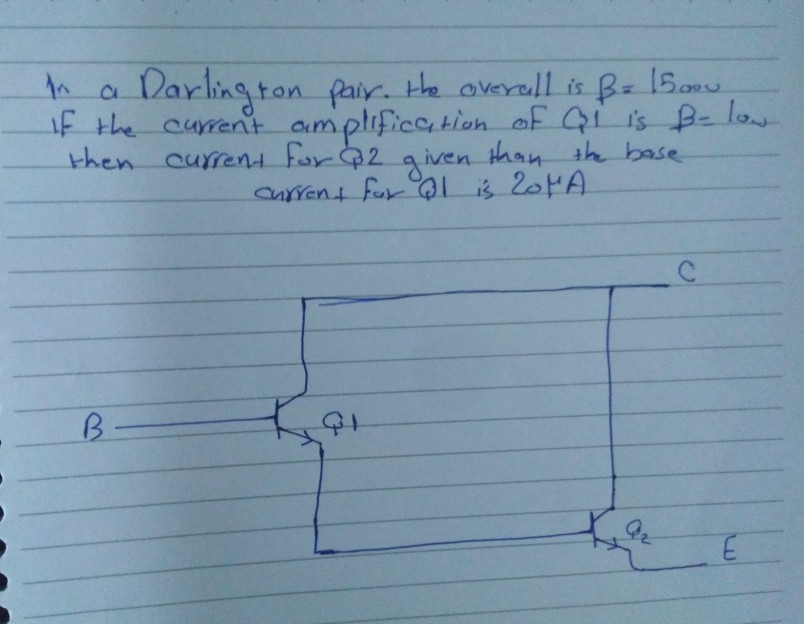 In a Darlington pair. the overall is β= 15000
if the current amplification of Q1 is β= 100
then current for Q2 given than the base
current for Q1 is 20µA
C
B
Q1
Q2
E